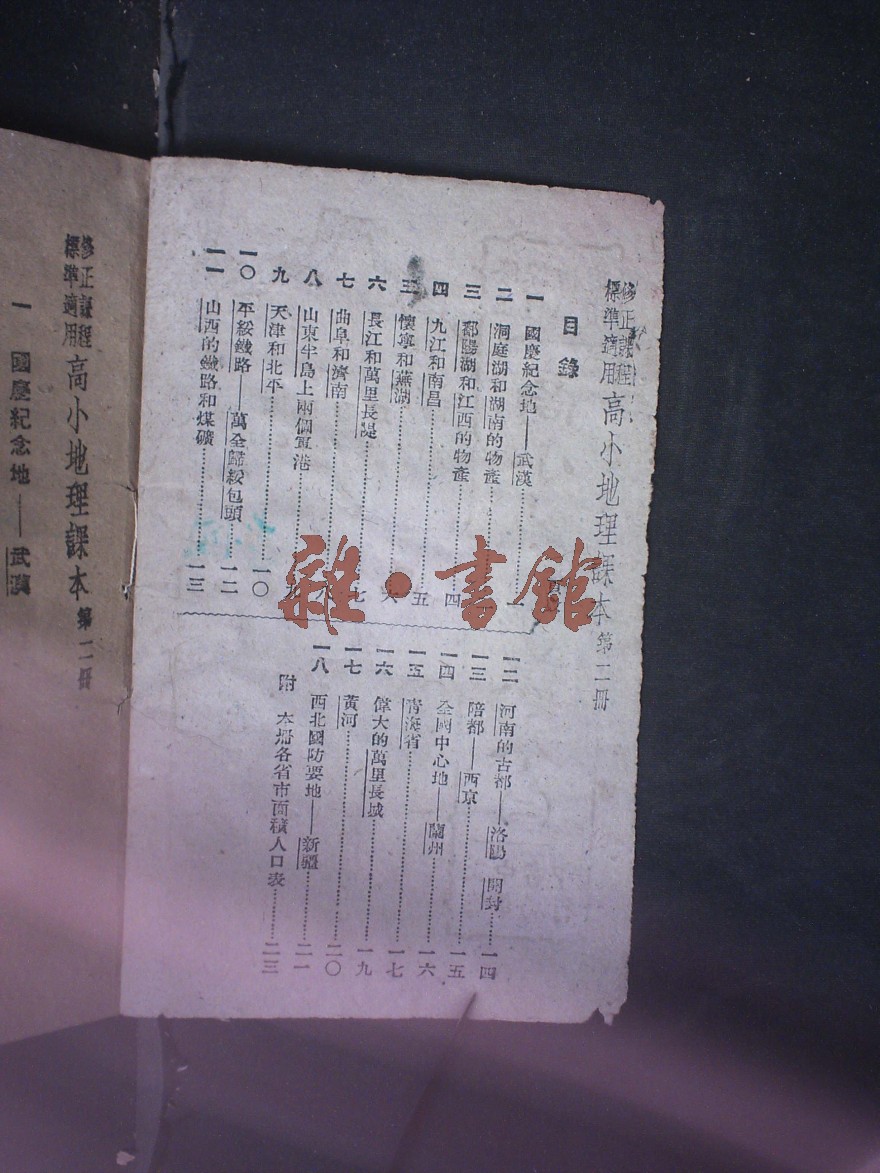 修正課程
標準適用
高小地理課本第二冊
目錄
一 國慶紀念地——武漢……一
二 洞庭湖和湖南的物產……
三 鄱陽湖和江西的物產……四
四 九江和南昌……五
五 懷寧和蕪湖……六
六 長江和萬里長隄……七
七 曲阜和濟南……
八 山東半島上兩個軍港……九
九 天津和北平……一〇
一〇 平綏鐵路——萬全歸綏包頭……一二
一一 山西的鐵路和煤礦……一三
一二 河南的古都——洛陽 開封……一四
一三 陪都——西京……一五
一四 全國中心地——蘭州……一六
一五 青海省……一七
一六 偉大的萬里長城……一九
一七 黃河……二〇
一八 西北國防要地——新疆……二一
附 本冊各省市面積人口表……二三
雜·書館
修正課程
標準適用
高小地理課本第二冊
一 國慶紀念地——武漢